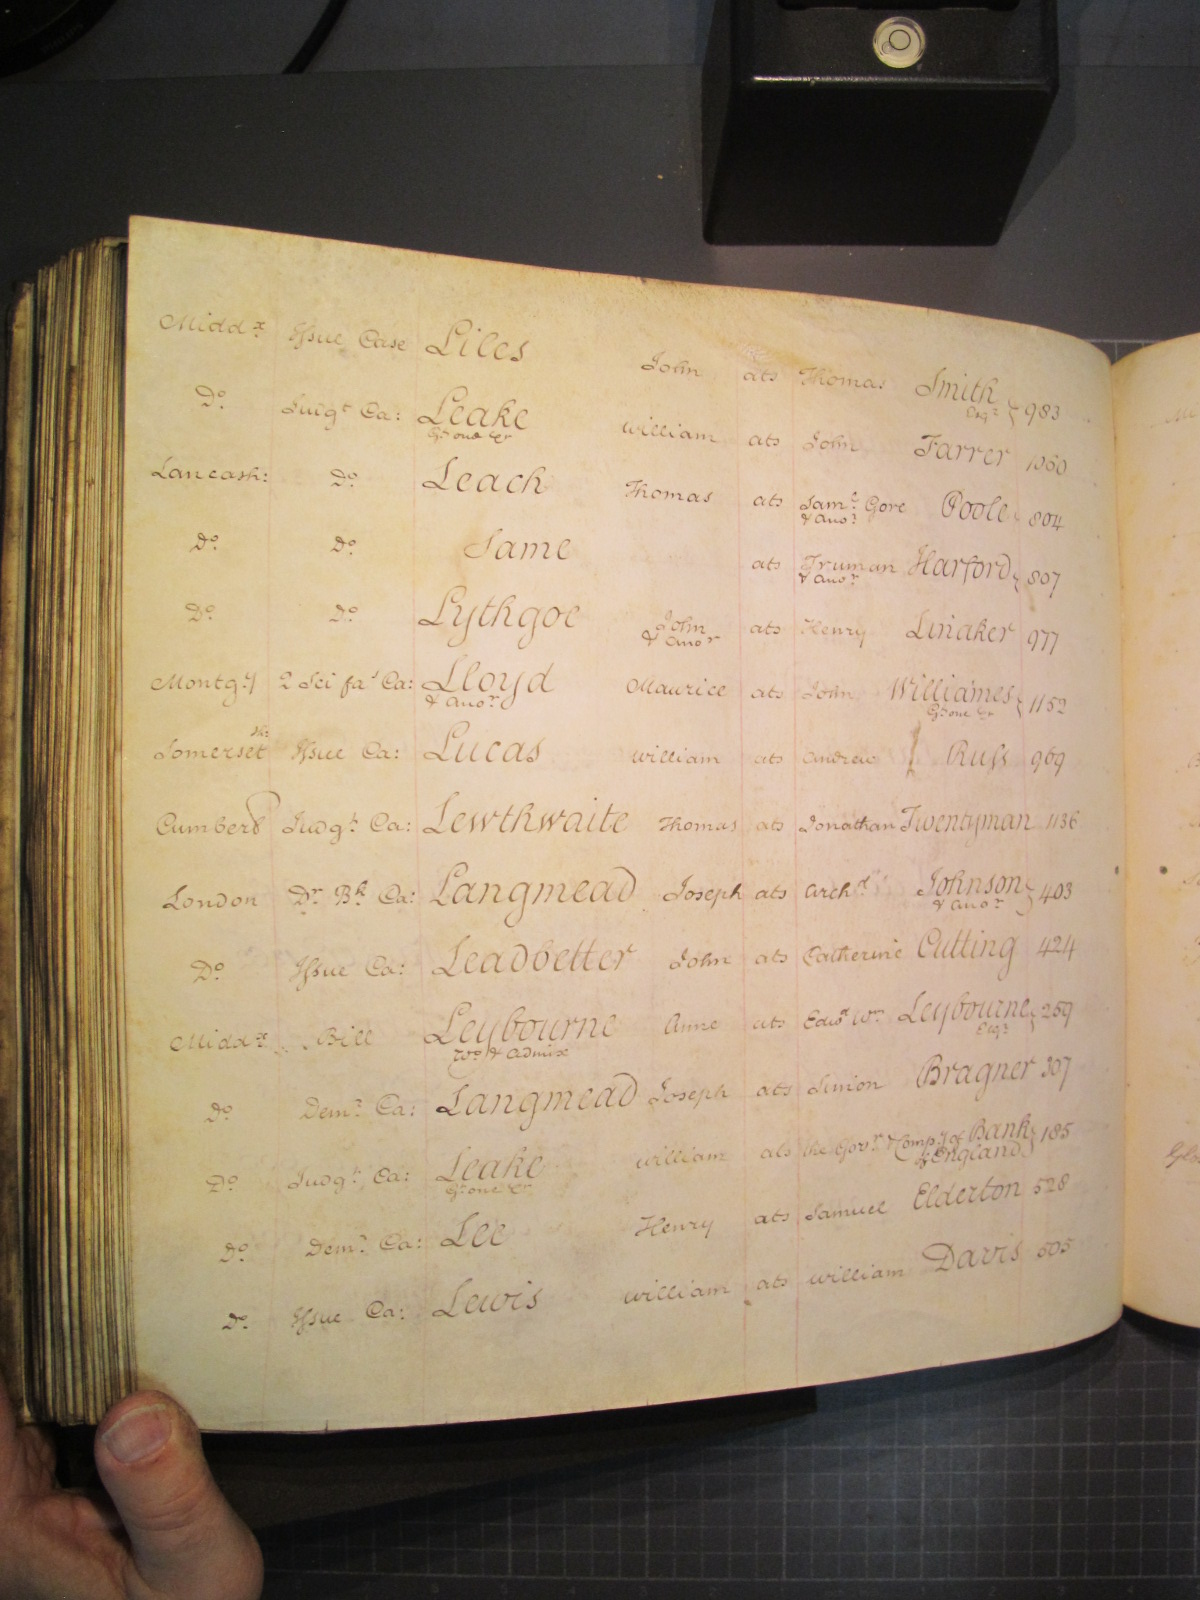 Middx Issue Case Liles John ats Thomas Smith Esqr 983
Do Judgt Ca: Leake Gt one &c William ats John Farrer 1060
Lancash: Do Leach Thomas ats Saml Gore & anor Poole 804
Do Do Same ats Truman & anor Harford 807
Do Do Lythgoe John & anor ats Henry Linaker 977
Montgy 2 Sci fas Ca: Lloyd & anor Maurice ats John Williames Gt one &c 1152
Somersetsh: Issue Ca: Lucas William ats Andrew Russ 969
Cumberd Judgt Ca: Lewthwaite Thomas ats Jonathan Twentyman 1136
London Dr Bk Ca: Langmead Joseph ats Archd Johnson & anor 403
Do Issue Ca: Leadbetter John ats Catherine Cutting 424
Middx Bill Leybourne Wo & Admix Anne ats Edwd Wm Leybourne Esqr 259
Do Demr Ca: Langmead Joseph ats Simon Bragner 307
Do Judgt Ca: Leake Gt one &c William ats the Govr & Compy of Bank of England 185
Do Demr Ca: Lee Henry ats Samuel Elderton 528
Do Issue Ca: Lewis William ats William Davis 505